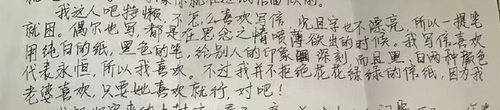 我这人吧特懒,不怎么喜欢写信,况且字也不漂亮,所以一提笔
就困。偶尔也写,都是在思念之情喷薄欲出的时候。我写信喜欢
用纯白的纸,黑色的笔,给别人的印象深刻而且黑,白两种颜色
代表永恒,所以我喜欢。不过我并不拒绝花花绿绿的信纸,因为我
老婆喜欢,只要她喜欢就行,对吧!